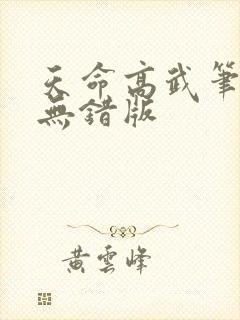 天命高武筆
無錯版
黃雲峰